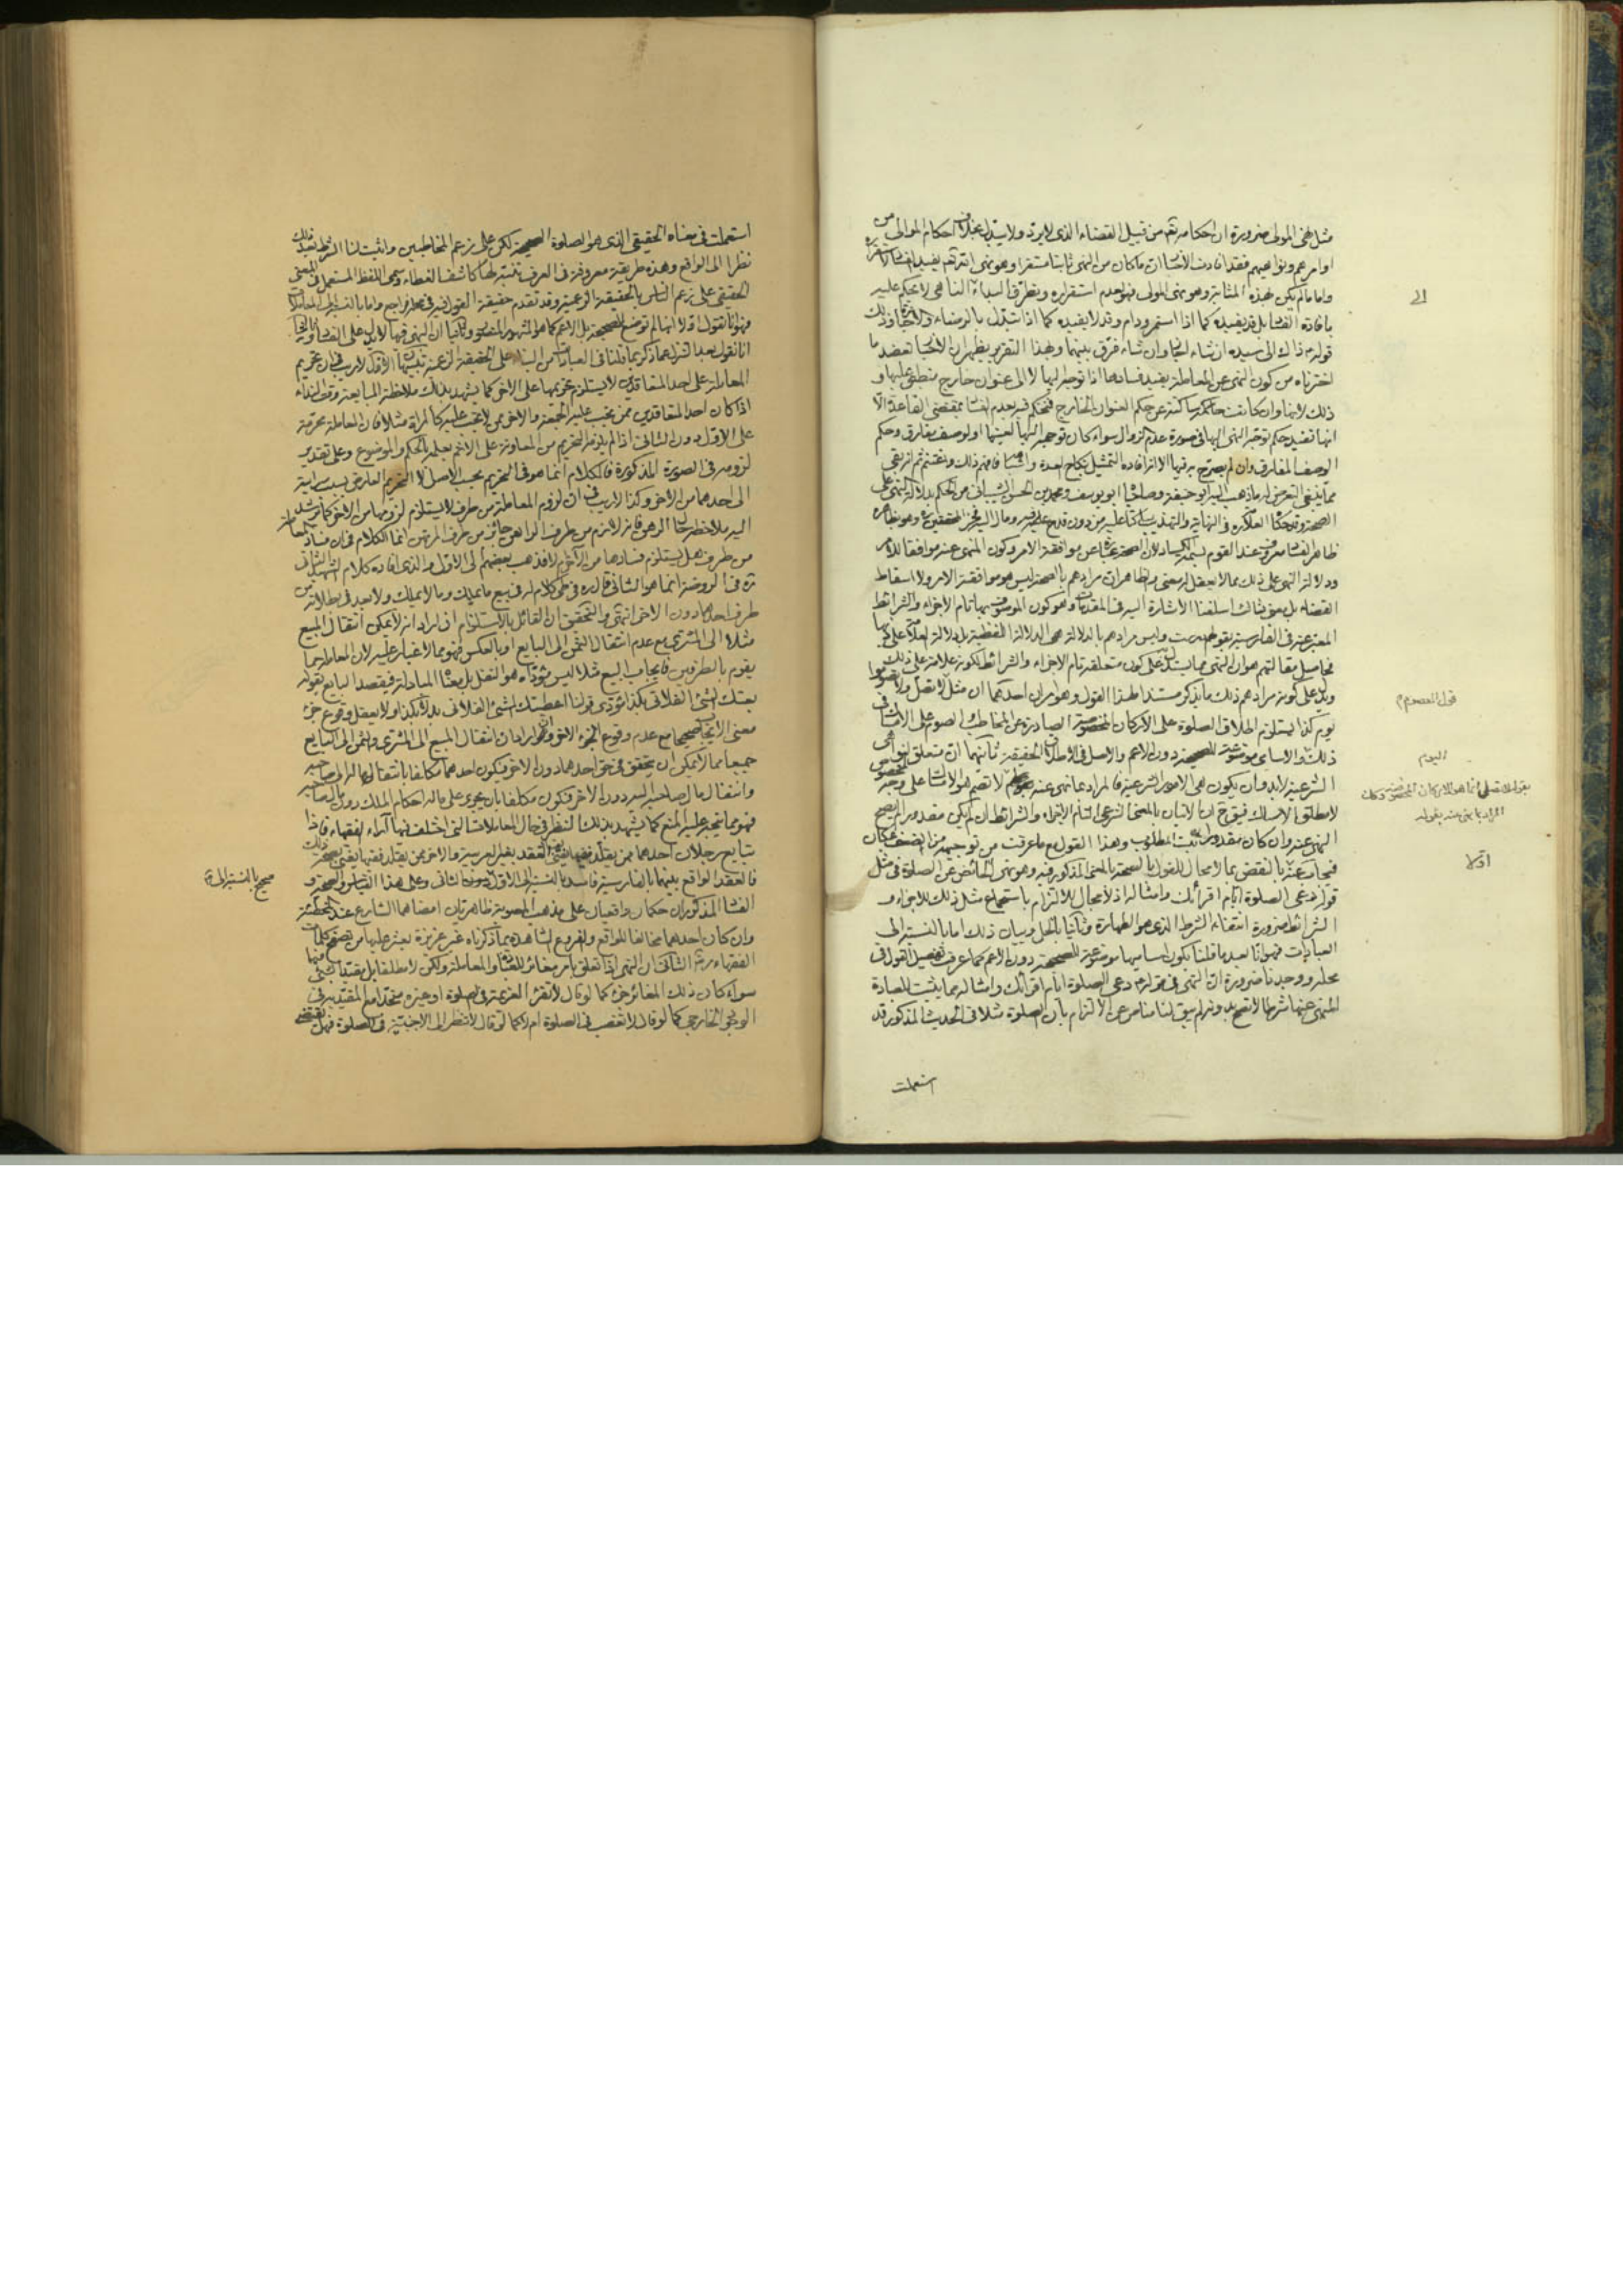 مثل نهى المولى ضرورة ان احكامه تعالى من قبيل القضاء الذى لا يرد ولا يبدل بخلاف احكام الموالى من
اوامرهم ونواهيهم فقد افادت الاخبار ان ما كان من النهى ثابتا مستقرا وهو نهى الله تعالى يفيد الفساد
واما ما لم يكن بهذه المثابة وهو نهى المولى فهو لعدم استقراره وتطرق البداء الناهى لا يحكم عليه
بافادة الفساد بل قد يفيده كما اذا استمر ودام وقد لا يفيده كما اذا تبدل بالرضاء
قوله ذاك الى سيده ان شاء اجاز وان شاء فرق بينهما وبهذا التقرير يظهر ان الاخبار تعضد ما
اخترناه من كون النهى عن المعاملة يفيد فسادها اذا توجه اليها لا الى عنوان خارج منطبق عليها و
ذلك لانها وان كانت ساكتة عن حكم العنوان الخارج فيحكم فيه بعدم الفساد بمقتضى القاعدة الا
انها تفيد حكم توجه النهى اليها فى صورة عدم الزوال سواء كان توجه اليها لعينها او لوصف مفارق وحكم
الوصف المفارق وان لم يصرح به فيها الا انه افاده التمثيل بنكاح العدة فافهم ذلك واغتنم ثم انه بقى
مما ينبغى التعرض له ما ذهب اليه ابو حنيفة وصاحباه ابو يوسف ومحمد بن الحسن الشيبانى من الحكم بدلالة النهى على
الصحة وقد حكاه العلامة فى النهاية والتهذيب ساكتا عليه من دون قدح فيه ومال اليه فخر المحققين وهو بظاهره
ظاهر الفساد عند القوم لان الصحة عبارة عن موافقة الامر وكون المنهى عنه موافقا للامر
ودلالة النهى على ذلك مما لا يعقل له معنى والظاهر ان مرادهم بالصحة ليس هو موافقة الامر ولا اسقاط
القضاء بل معنى ثالث اسلفنا الاشارة اليه فى المقدمات وهو كون الموصوف بها تام الاجزاء والشرائط
المعبر عنه فى الفارسية بقولهم درست وليس مرادهم بالدلالة هى الدلالة اللفظية بل دلالة العلامة على
فحاصل مقالتهم هو ان النهى مما يستدل به على كون متعلقه تام الاجزاء والشرائط لكونه علامة على ذلك
ويدل على كون مرادهم ذلك ما يذكر مستندا لهذا القول وهو امران احدهما ان مثل لا تصل ولا تصوموا
يوم كذا يستلزم اطلاق الصلوة على الاركان المخصوصة الصادرة عن المخاطب والصوم على الامساك
ذلك والاسامى موضوعة للصحيحة دون الاعم والاصل فى الاطلاق الحقيقة ثانيهما ان متعلق النواهى
الشرعية لا بد وان يكون هى الامور الشرعية فالمراد بما نهى عنه لا تصم هو الامساك على وجه
لا مطلق الامساك فيقبح ح ان الاتيان بالمعنى الشرعى التام الاجزاء والشرائط ان لم يكن مقدورا لم يصح
النهى عنه وان كان مقدورا ثبت المطلوب وهذا القول مع ما عرفت من توجيهه من الضعف بمكان
فيجاب عنه بالنقض بما لا مجال للقول بالصحة بالمعنى المذكور فيه وهو نهى الحائض عن الصلوة فى مثل
قوله دعى الصلوة ايام اقرائك وامثاله اذ لا مجال للالتزام باستجماع مثل ذلك للاجزاء و
الشرائط ضرورة انتفاء الشرط الذى هو الطهارة وثانيا بالحل وبيان ذلك اما بالنسبة الى
العبادات فهو انا بعد ما قلنا بكون اساميها موضوعة للصحيحة دون الاعم كما عرفت تفصيل القول فى
محله ووجدنا ضرورة ان النهى فى قوله دعى الصلوة ايام اقرائك وامثاله مما يثبت للعبادة
المنهى عنها شرطا لا تصح بدونه لم يبق لنا مناص عن الالتزام بان الصلوة مثلا فى الحديث المذكور قد
استعملت
قول المعصوم
اليوم
بقوله لا تصلى انما هو الاركان المخصوصة وكذلك
المراد بما نهى عنه بقوله
اولا
استعملت فى معناه الحقيقى الذى هو الصلوة الصحيحة لكن على زعم المخاطبين واثبت لنا الشرط بعد ذلك
نظرا الى الواقع وهذه طريقة معروفة فى العرف تنبه لها كاشف الغطاء وسمى اللفظ المستعمل فى المعنى
الحقيقى على زعم الناس بالحقيقة الزعمية وقد تقدم حقيقة القول فيه فى محله فراجع واما بالنسبة الى المعاملات
فهو انا نقول اولا انها لم توضع للصحيحة بل للاعم كما هو المشهور المنصور وثانيا ان النهى فيها لا يدل على الفساد
انا نقول بعد التنزل عما ذكر بما قلنا فى العبادات من البناء على الحقيقة الزعمية تنبيهان الاول لا ريب فى ان تحريم
المعاملة على احد المتعاقدين لا يستلزم تحريمها على الاخر كما يشهد بذلك ملاحظة المبايعة وقت النداء
اذا كان احد المتعاقدين ممن يجب عليه الجمعة والاخر ممن لا تجب عليه كالمراة مثلا فان المعاملة محرمة
على الاول دون الثانى اذا لم يلزم التحريم من المعاونة على الاثم بعلمه بالحكم والموضوع وعلى تقدير
لزومه فى الصورة المذكورة فالكلام انما هو فى التحريم بحسب الاصل لا التحريم العارض بسبب سراية
الى احدهما من الاخر وكذا لا ريب فى ان لزوم المعاملة من طرف لا يستلزم لزومها من الاخر كما يرشد
اليه ملاحظة حال الرهن فانه لازم من طرف الراهن جائز من طرف المرتهن انما الكلام فى ان فساد المعاملة
من طرف هل يستلزم فسادها من الاخر ام لا فذهب بعضهم الى الاول والذى افاده كلام الشهيد الثانى
ره فى الروضة انما هو الثانى قال ره فى طى كلام له فى بيع ما يملك وما لا يملك ولا بعد فى بطلانه من
طرف احدهما دون الاخر انتهى والتحقيق ان القائل بالاستلزام ان اراد انه لا يمكن انتقال المبيع
مثلا الى المشترى مع عدم انتقال الثمن الى البايع او بالعكس فهو مما لا غبار عليه لان المعاملة مما
يقوم بالطرفين فايجاب البيع مثلا ليس مؤداه هو النقل بل مع المبادلة فيقصد البايع بقوله
بعتك الشئ الفلانى بكذا مؤدى قولنا اعطيتك الشئ الفلانى بدلا بكذا ولا يعقل وقوع جزء
معنى الايجاب صحيحا مع عدم وقوع الجزء الاخر وان اراد ان انتقال المبيع الى المشترى والثمن الى البايع
جميعا مما لا يمكن ان يتحقق فى حق احدهما دون الاخر فيكون احدهما مكلفا بانتقال ماله الى صاحبه
وانتقال مال صاحبه اليه دون الاخر فيكون مكلفا بان يجرى على ماله احكام الملك دون مال صاحبه
فهو مما يتجه عليه المنع كما يشهد بذلك النظر فى حال المعاملات التى اختلف فيها آراء الفقهاء فاذا
تبايع رجلان احدهما ممن يقلد فقيها يفتى بفساد العقد بغير العربية والاخر ممن يقلد فقيها يفتى بصحة ذلك
فالعقد الواقع بينهما بالفارسية فاسد بالنسبة الى الاول الثانى وعلى هذا القياس والصحة و
الفساد المذكوران حكمان واقعيان على مذهب المصوبة ظاهريان امضاهما الشارع عند المخطئة
وان كان احدهما مخالفا للواقع والفروع الشاهدة بما ذكرناه غير عزيزة يعثر عليها من تصفح كلمات
الفقهاء الثانى ان النهى اذا تعلق بامر مغائر للعبادة والمعاملة ولكن لا مطلقا بل مقيدا بشئ منها
سواء كان ذلك المغائر جزء كما لو قال لا تقرء العزيمة فى الصلوة او غيره متحدا مع المقيد به فى
الوجود الخارجى كما لو قال لا تغصب فى الصلوة ام لا كما لو قال لا تنظر الى الاجنبية فى الصلوة فهل يقتضى
صحيح بالنسبة الى